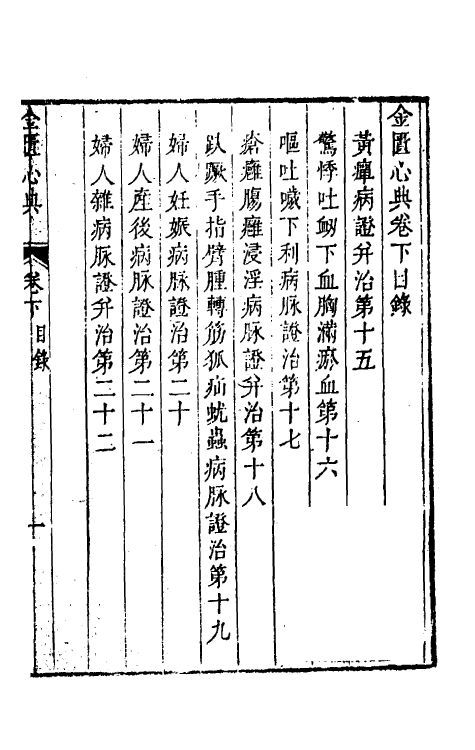 金匱心典卷下目錄
黃癉病證并治第十五
驚悸吐衂下血胸滿瘀血第十六
嘔吐噦下利病脉證治第十七
瘡癰腸癰浸淫病脉證并治第十八
趺蹶手指臂腫轉筋狐疝蚘蟲病脉證治第十九
婦人妊娠病脉證治第二十
婦人產後病脉證治第二十一
婦人雜病脉證并治第二十二
金匱心典
卷下目錄
一